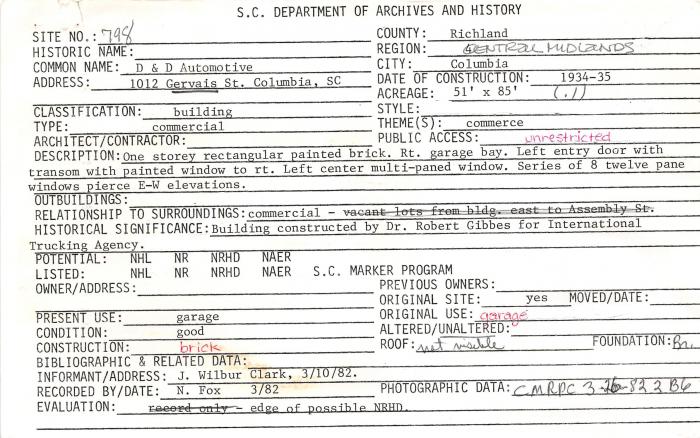 S.C. DEPARTMENT OF ARCHIVES AND HISTORY
SITE NO.: 798 COUNTY: Richland
HISTORIC NAME: REGION: CENTRAL MIDLANDS
COMMON NAME: D & D Automotive CITY: Columbia
ADDRESS: 1012 Gervais St. Columbia, SC DATE OF CONSTRUCTION: 1934-35
ACREAGE: 51' x 85' (.1)
CLASSIFICATION: building STYLE:
TYPE: commercial THEME(S): commerce
ARCHITECT/CONTRACTOR: PUBLIC ACCESS: unrestricted
DESCRIPTION: One storey rectangular painted brick. Rt. garage bay. Left entry door with
transom with painted window to rt. Left center multi-paned window. Series of 8 twelve pane
windows pierce E-W elevations.
OUTBUILDINGS:
RELATIONSHIP TO SURROUNDINGS: commercial - vacant lots from bldg. east to Assembly St.
HISTORICAL SIGNIFICANCE: Building constructed by Dr. Robert Gibbes for International
Trucking Agency.
POTENTIAL: NHL NR NRHD NAER
LISTED: NHL NR NRHD NAER S.C. MARKER PROGRAM
OWNER/ADDRESS: PREVIOUS OWNERS:
ORIGINAL SITE: yes MOVED/DATE:
PRESENT USE: garage ORIGINAL USE: garage
CONDITION: good ALTERED/UNALTERED:
CONSTRUCTION: brick ROOF: not visible FOUNDATION:
BIBLIOGRAPHIC & RELATED DATA:
INFORMANT/ADDRESS: J. Wilbur Clark, 3/10/82.
RECORDED BY/DATE: N. Fox 3/82 PHOTOGRAPHIC DATA: CMRPC 3-26-82 2 B6
EVALUATION: record only - edge of possible NRHD.